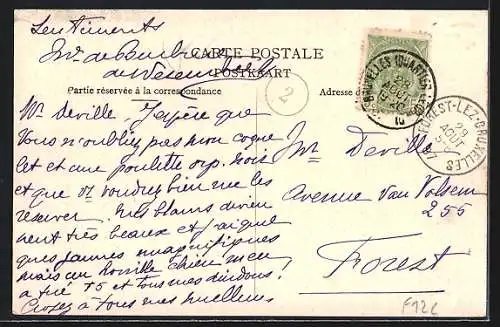 Sentiments
Mr de
CARTE POSTALE
de
POSTKAART
Partie réservée à la correspondance
Adresse
2
BRUXELLES (QUARTIER
29
AOUT
10
FOREST-LEZ-BRUXELLES
29
AOUT
Mr Deville J'espère que
vous n'oubliez pas mon coque
let et une poulette orp. noir
et que vs voudrez bien me les
réserver. Mes blancs devien
nent très beaux et j'ai que
ques jaunes magnifiques
mais un horrible chien m'en
a tué 15 et tous mes dindons!
Croyez à tous mes meilleurs
Mr Deville
Avenue Van Volxem
255
Forest
F12c